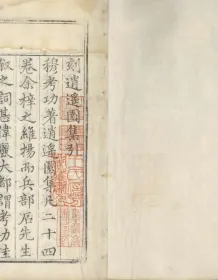 刻逍遥園集引
穆考功著逍遥園集凡二十四
卷余梓之維揚而兵部居先生
叙之詞甚偉麗大都謂考功生